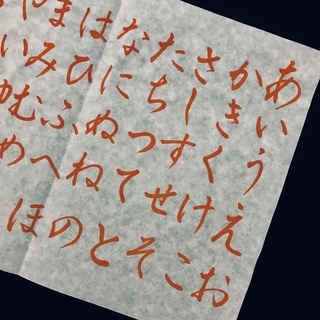 あいうえお
かきくけこ
さしすせそ
たちつてと
なにぬねの
はひふへほ
まみむめ
やいゆ